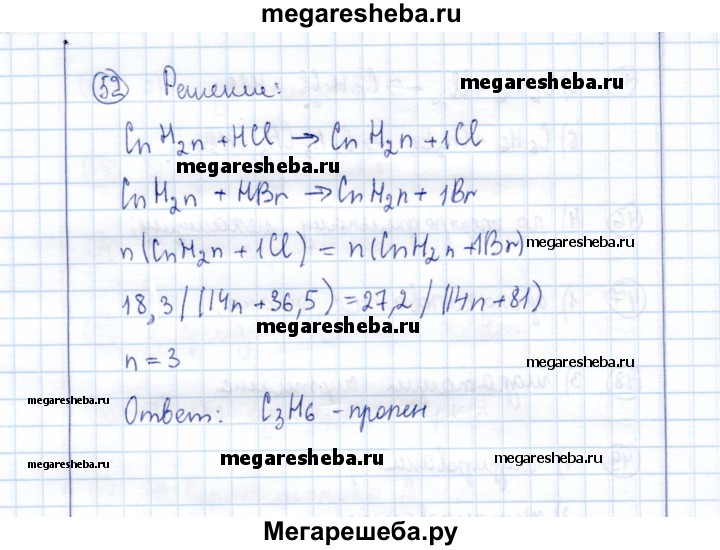 megaresheba.ru
52 Решение:
megaresheba.ru
CnH2n + HCl → CnH2n+1Cl
megaresheba.ru
CnH2n + HBr → CnH2n+1Br
n(CnH2n+1Cl) = n(CnH2n+1Br)
megaresheba.ru
18,3/(14n+36,5) = 27,2/(14n+81)
megaresheba.ru
n = 3
megaresheba.ru
megaresheba.ru
Ответ: C3H6 - пропен
megaresheba.ru
megaresheba.ru
megaresheba.ru
Мегарешеба.ру